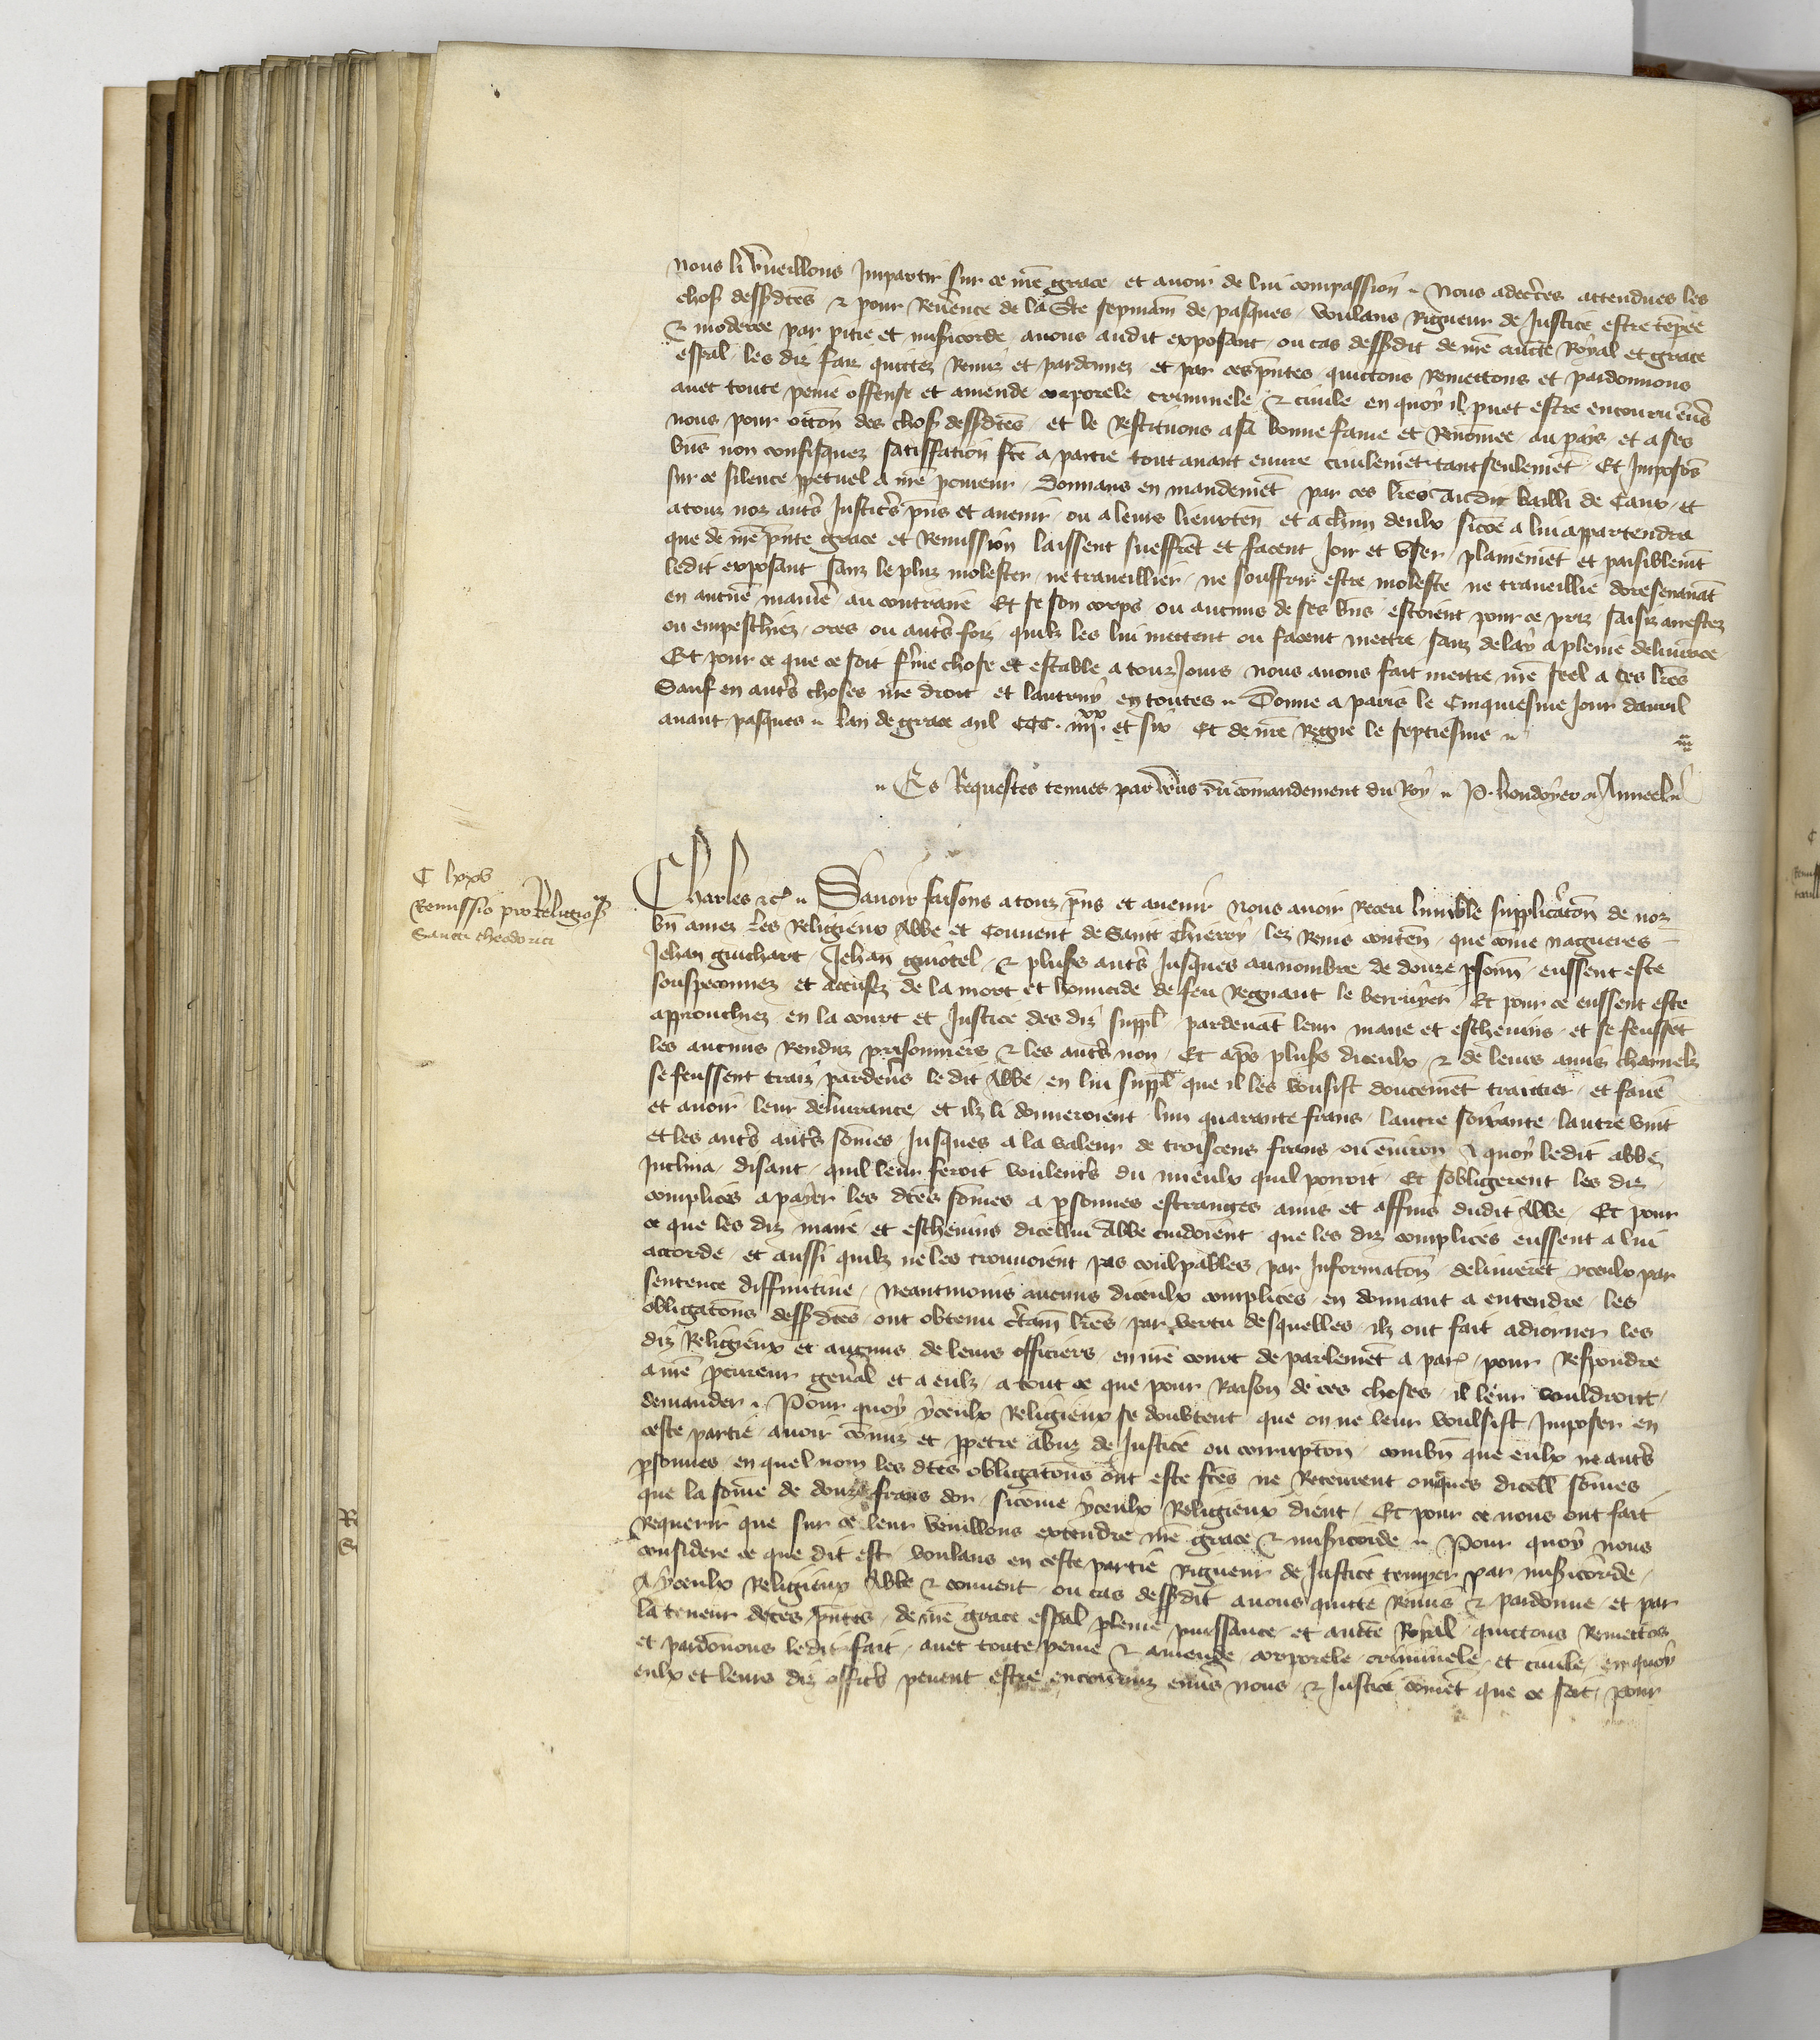 nous li vueillons Impartir sur ce nre grace et avoir de lui compassion Nous adecertes attendues les
choses dessdtes & pour Reverence de la Ste sepmaine de pasques voulans Rigueur de Justice estre tempee
& moderee par pitie et misicorde avons audit exposant ou cas dessdit de nre aucte Royal et grace
espal les diz faiz quictez Remiz et pardonnez et par ces pntes quictons Remettons et pardonnons
avec toute peine offense et amende corporele criminele & civile en quoy il puet estre encouru envs
nous pour occon des choses dessdtes et le Restituons a sa bonne fame et Renomee au pays et a ses
bns non confisquez satisfacion fte a partie tout avant euvre civilemet tant seulemet Et Imposons
sur ce silence ppetuel a nre procureur Donnans en mandemet par ces lres au dit bailli de Caux et
a touz noz auts Justiciers pns et avenir ou a leurs lieuxten et a chun deulx sicoe a lui appartendra
que de nre pnte grace et Remission laissent suefrent et facent Joir et user plainemet et paisiblemt
ledit exposant sanz le plus molester ne traveillier ne souffrir estre moleste ne traveillie doresenavat
en aucune maniere au contraire Et se son corps ou aucuns de ses bns estoient pour ce priz saisiz arrestez
ou empeschiez ores ou auts foiz quilz les lui mettent ou facent mettre sanz delay a pleine delivrace
Et pour ce que ce soit fme chose et estable a touz Jours nous avons fait mettre nre seel a ces lres
Sauf en auts choses nre droit et lautruy en toutes Donne a paris le Cinquiesme Jour davril
avant pasques lan de grace mil CCC. iiiixx et six Et de nre Regne le septiesme
Es Requestes tenues par vous du comandement du Roy P. houdoyer
C lxxv
Remissio pro Religiosis
Sancti theodorici
Charles &c Savoir faisons a touz pns et avenir Nous avoir Receu lumble supplicacon de noz
bn amez les Religieux Abbe et Couvent de Saint Thierry lez Reins conten que come nagueres
Jehan guichart Jehan guiotel & plusrs auts Jusques au nombre de douze psonn eussent este
souspeconnez et accusez de la mort et homicide de feu Regnaut le berruyer Et pour ce eussent este
approuchiez en la court et Justice des diz suppl pardevat leur maire et eschevins et se feusset
les aucuns Renduz prisonniers & les auts non Et aps plusrs diceulx & de leurs amis charnelz
se feussent traiz pardevs le dit Abbe en lui suppl que il les voulsist doucemet traictier et faire
et avoir leur delivrance et ilz li donneroient lun quarante frans lautre soixante lautre vint
et les auts auts somes Jusques a la valeur de troiscens frans ou environ A quoy ledit abbe
Inclina disant quil leur feroit voulents du mieulx quil porroit Et sobligerent les diz
complices a payer les dtes somes a psonnes estranges amis et affins dudit Abbe Et pour
ce que les diz maire et eschevins dicellui Abbe cuidoient que les diz complices eussent a lui
accorde et aussi quilz ne les trouvoient pas coulpables par Informaton deliveret yceulx par
sentence diffinitive Neantmoins aucuns diceulx complices en donnant a entendre les
obligatons dessdtes ont obtenu ctain lres par vertu desquelles ilz ont fait adiorner les
diz Religieux et aucuns de leurs officiers en nre court de parlemet a par pour Respondre
a nre pcureur genal et a eulz a tout ce que pour Raison de ces choses il leur vouldroit
demander Pour quoy yceulx Religieux se doubtent que on ne leur voulsist Imposer en
ceste partie avoir comis et ppetre abuz de Justice ou corrupton combn que eulx ne auts
psonnes en quel nom les dtes obligatons ont este ftes ne Receurent onques dicell somes
que la some de douze frans dor sicome yceulx Religieux dient Et pour ce nous ont fait
Requerir que sur ce leur veuillons extendre nre grace & misicorde Pour quoy nous
considere ce que dit est voulans en ceste partie Rigueur de Justice temper par misicorde
A yceulx Religieux Abbe & couvent ou cas dessdit avons quitte Remis & pardonne et par
la teneur de ces pntes de nre grace espal pleine puissance et aucte Royal quictons Remettos
et pardonnons ledit fait avec toute peine & amende corporele criminele et civile en quoy
eulx et leurs diz offics peuent estre encouruz envs nous & Justice comet que ce soit pour